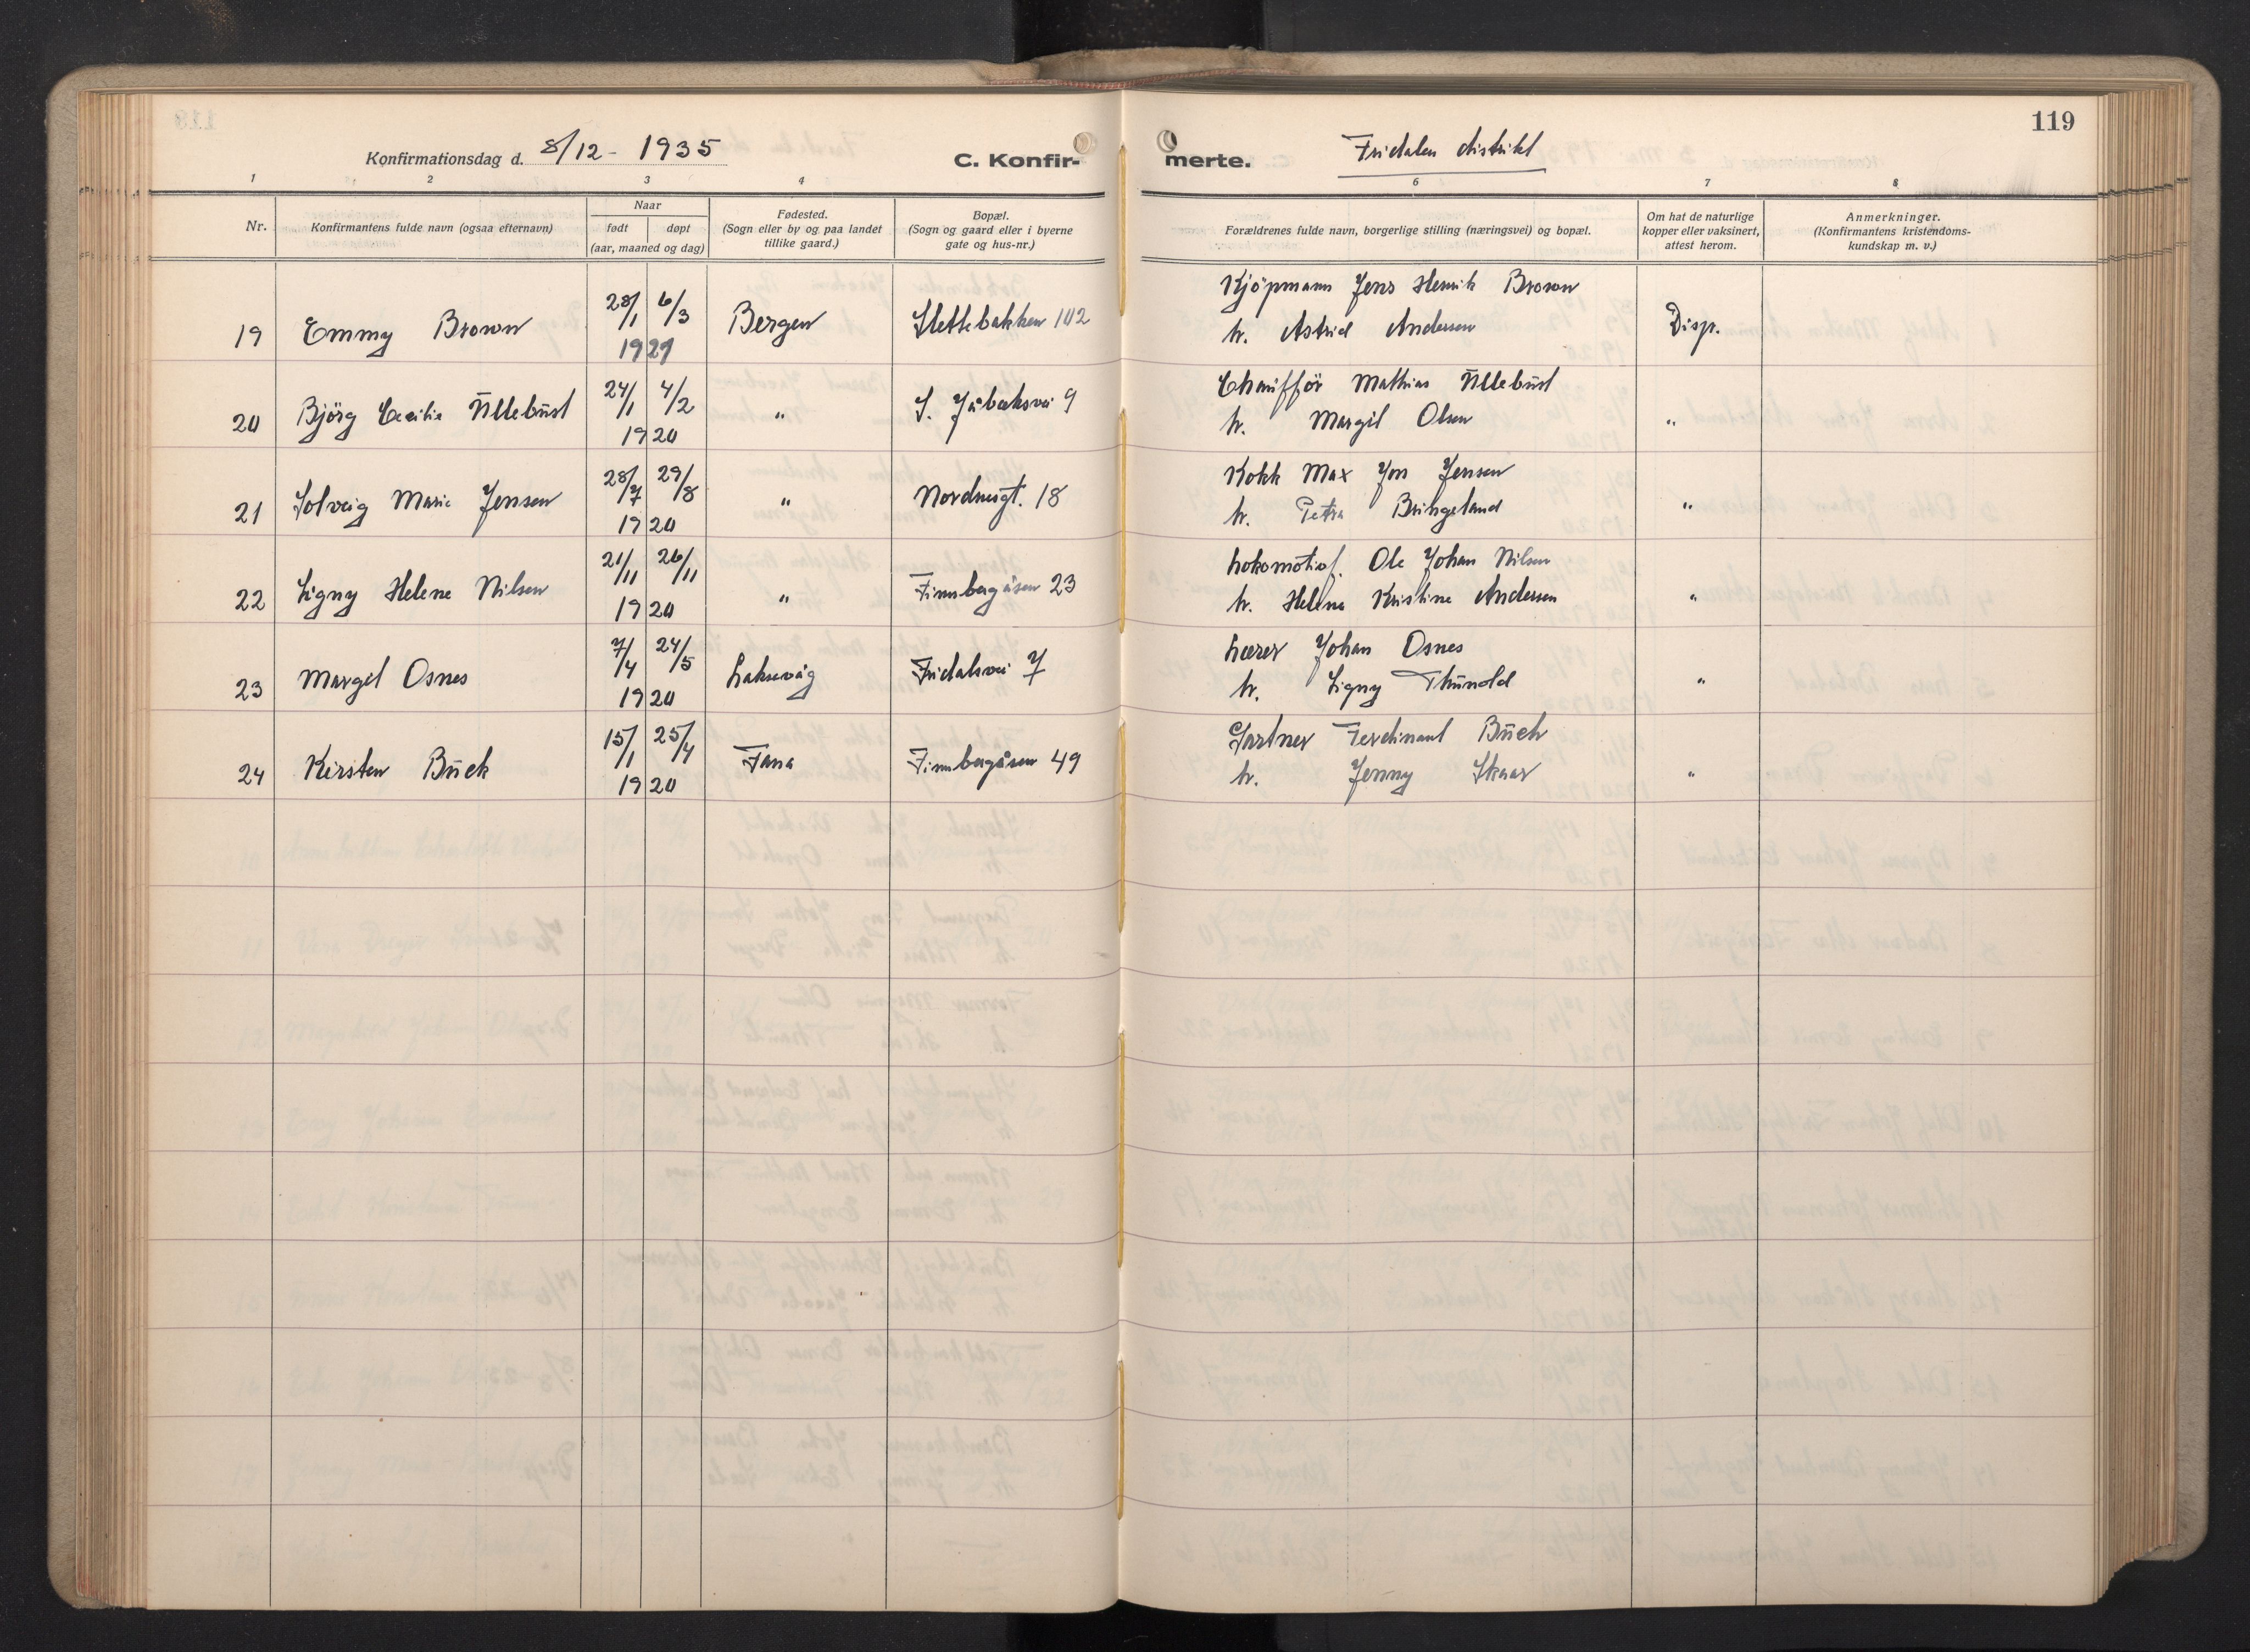 119
Konfirmationsdag d. 8/12 - 1935 C. Konfir- merte. Fridalen distrikt
1 2 3 4 6 7 8
Nr. Konfirmantens fulde navn (ogsaa efternavn) Naar født døpt (aar, maaned og dag) Fødested. (Sogn eller by og paa landet tillike gaard.) Bopæl. (Sogn og gaard eller i byerne gate og hus-nr.) Forældrenes fulde navn, borgerlige stilling (næringsvei) og bopæl. Om hat de naturlige kopper eller vaksinert, attest herom. Anmerkninger. (Konfirmantens kristendoms- kundskap m. v.)
Kjöpmann Jens Henrik Brown
19 Emmy Brown 28/1 6/3 1921 Bergen Slettebakken 102 h. Astrid Andersen Disp.
Chaufför Mathias Ūllebūst
20 Björg Cecilie Ūllebūst 24/1 4/2 1920 " h. Margit Olsen "
Kokk Max Jon Jensen
21 Solveig Marie Jensen 28/7 29/8 1920 " Nordnesgt. 18 h. Petra Bringeland "
Lokomotivf. Ole Johan Nilsen
22 Signy Helene Nilsen 21/11 26/11 1920 " Finnbergåsen 23 h. Helene Kristine Andersen "
Lærer Johan Osnes
23 Margit Osnes 7/4 24/5 1920 Laksevåg Fridalsvei 7 h. Signy Thūnold "
Gartner Ferdinant Būch
24 Kirsten Būch 15/1 25/4 1920 Fana Finnbergåsen 49 h. Jenny Skaar "